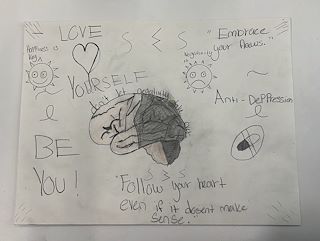 LOVE
YOURSELF
"Embrace
your flaws."
Happiness is
key
Negativity
Don't let negativity
Anti-DePPression
BE
YOU!
"Follow your heart
even if it dosent make
sense."